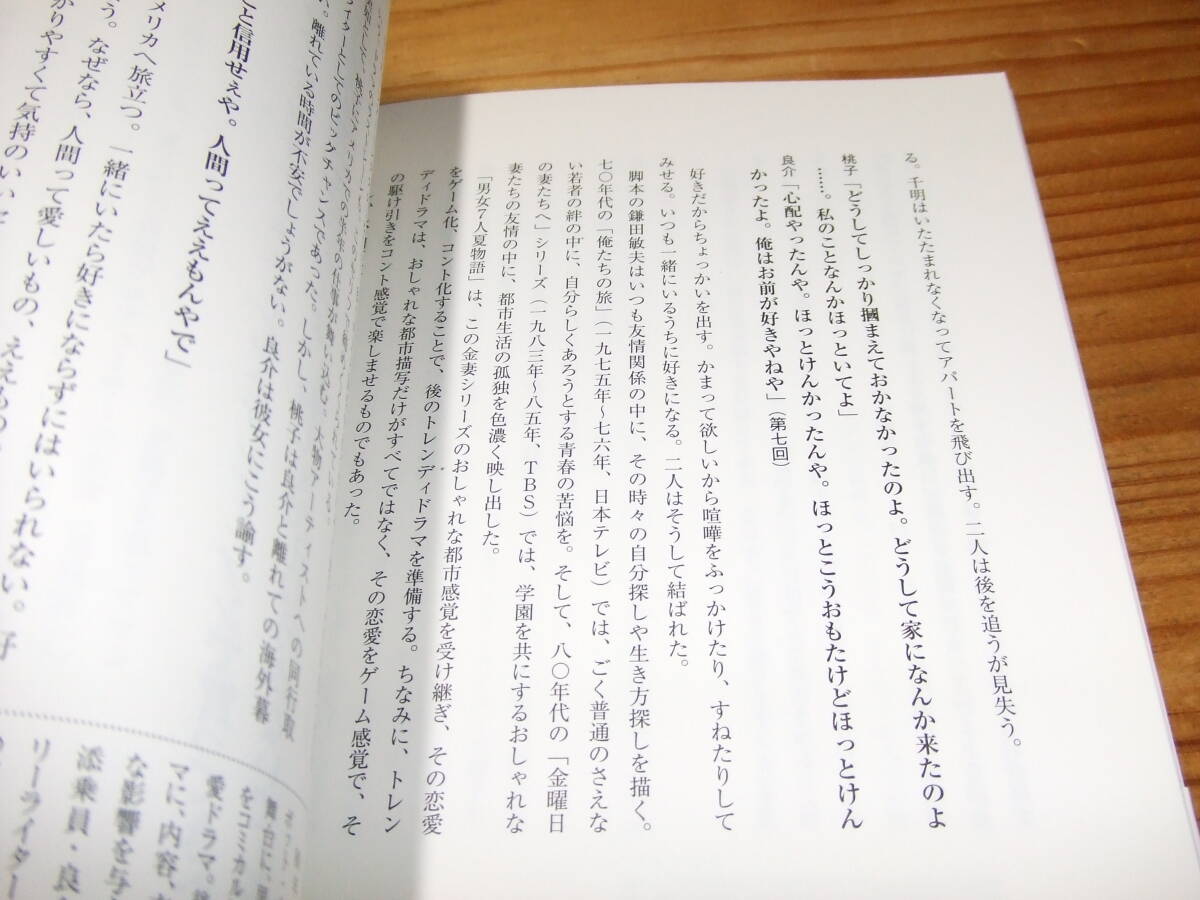 る。千明はいたたまれなくなってアパートを飛び出す。二人は後を追うが見失う。
桃子「どうしてしっかり摑まえておかなかったのよ。どうして家になんか来たのよ
……。私のことなんかほっといてよ」
良介「心配やったんや。ほっとけんかったんや。ほっとこうおもたけどほっとけん
かったよ。俺はお前が好きやねや」（第七回）
好きだからちょっかいを出す。かまって欲しいから喧嘩をふっかけたり、すねたりして
みせる。いつも一緒にいるうちに好きになる。二人はそうして結ばれた。
脚本の鎌田敏夫はいつも友情関係の中に、その時々の自分探しや生き方探しを描く。
七〇年代の「俺たちの旅」（一九七五年〜七六年、日本テレビ）では、ごく普通のさえな
い若者の絆の中に、自分らしくあろうとする青春の苦悩を。そして、八〇年代の「金曜日
の妻たちへ」シリーズ（一九八三年〜八五年、TBS）では、学園を共にするおしゃれな
妻たちの友情の中に、都市生活の孤独を色濃く映し出した。
「男女７人夏物語」は、この金妻シリーズのおしゃれな都市感覚を受け継ぎ、その恋愛
をゲーム化、コント化することで、後のトレンディドラマを準備する。ちなみに、トレン
ディドラマは、おしゃれな都市描写だけがすべてではなく、その恋愛をゲーム感覚で、そ
の駆け引きをコント感覚で楽しませるものでもあった。
イターとしてのビッグチャンスであった。しかし、桃子は良介と離れての海外暮
離れている時間が不安でしょうがない。良介は彼女にこう諭す。
と信用せえや。人間ってええもんやで」
メリカへ旅立つ。一緒にいたら好きにならずにはいられない。好
う。なぜなら、人間って愛しいもの、ええもの
かりやすくて気持のいい
をコミカル
愛ドラマ。
マに、内容、
な影響を与
添乗員・良
リーライター